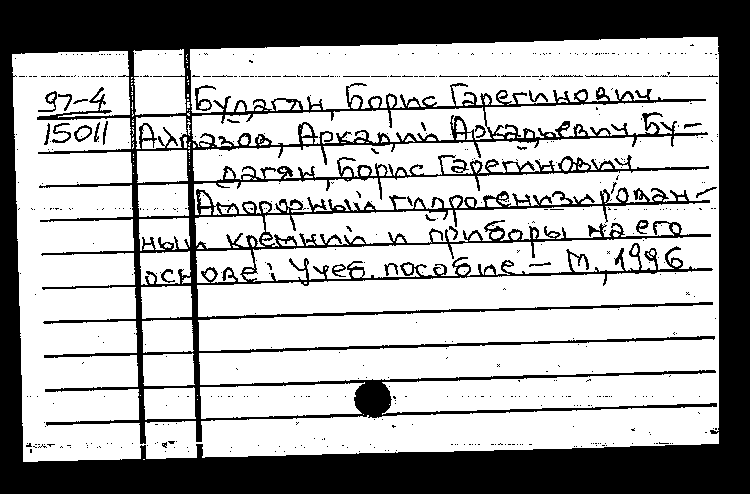 97-4 Будагян, Борис Гарегинович.
15011 Айвазов, Аркадий Аркадьевич, Бу-
дагян, Борис Гарегинович
Аморфный гидрогенизирован-
ный кремний и приборы на его
основе: Учеб. пособие. – М., 1996.